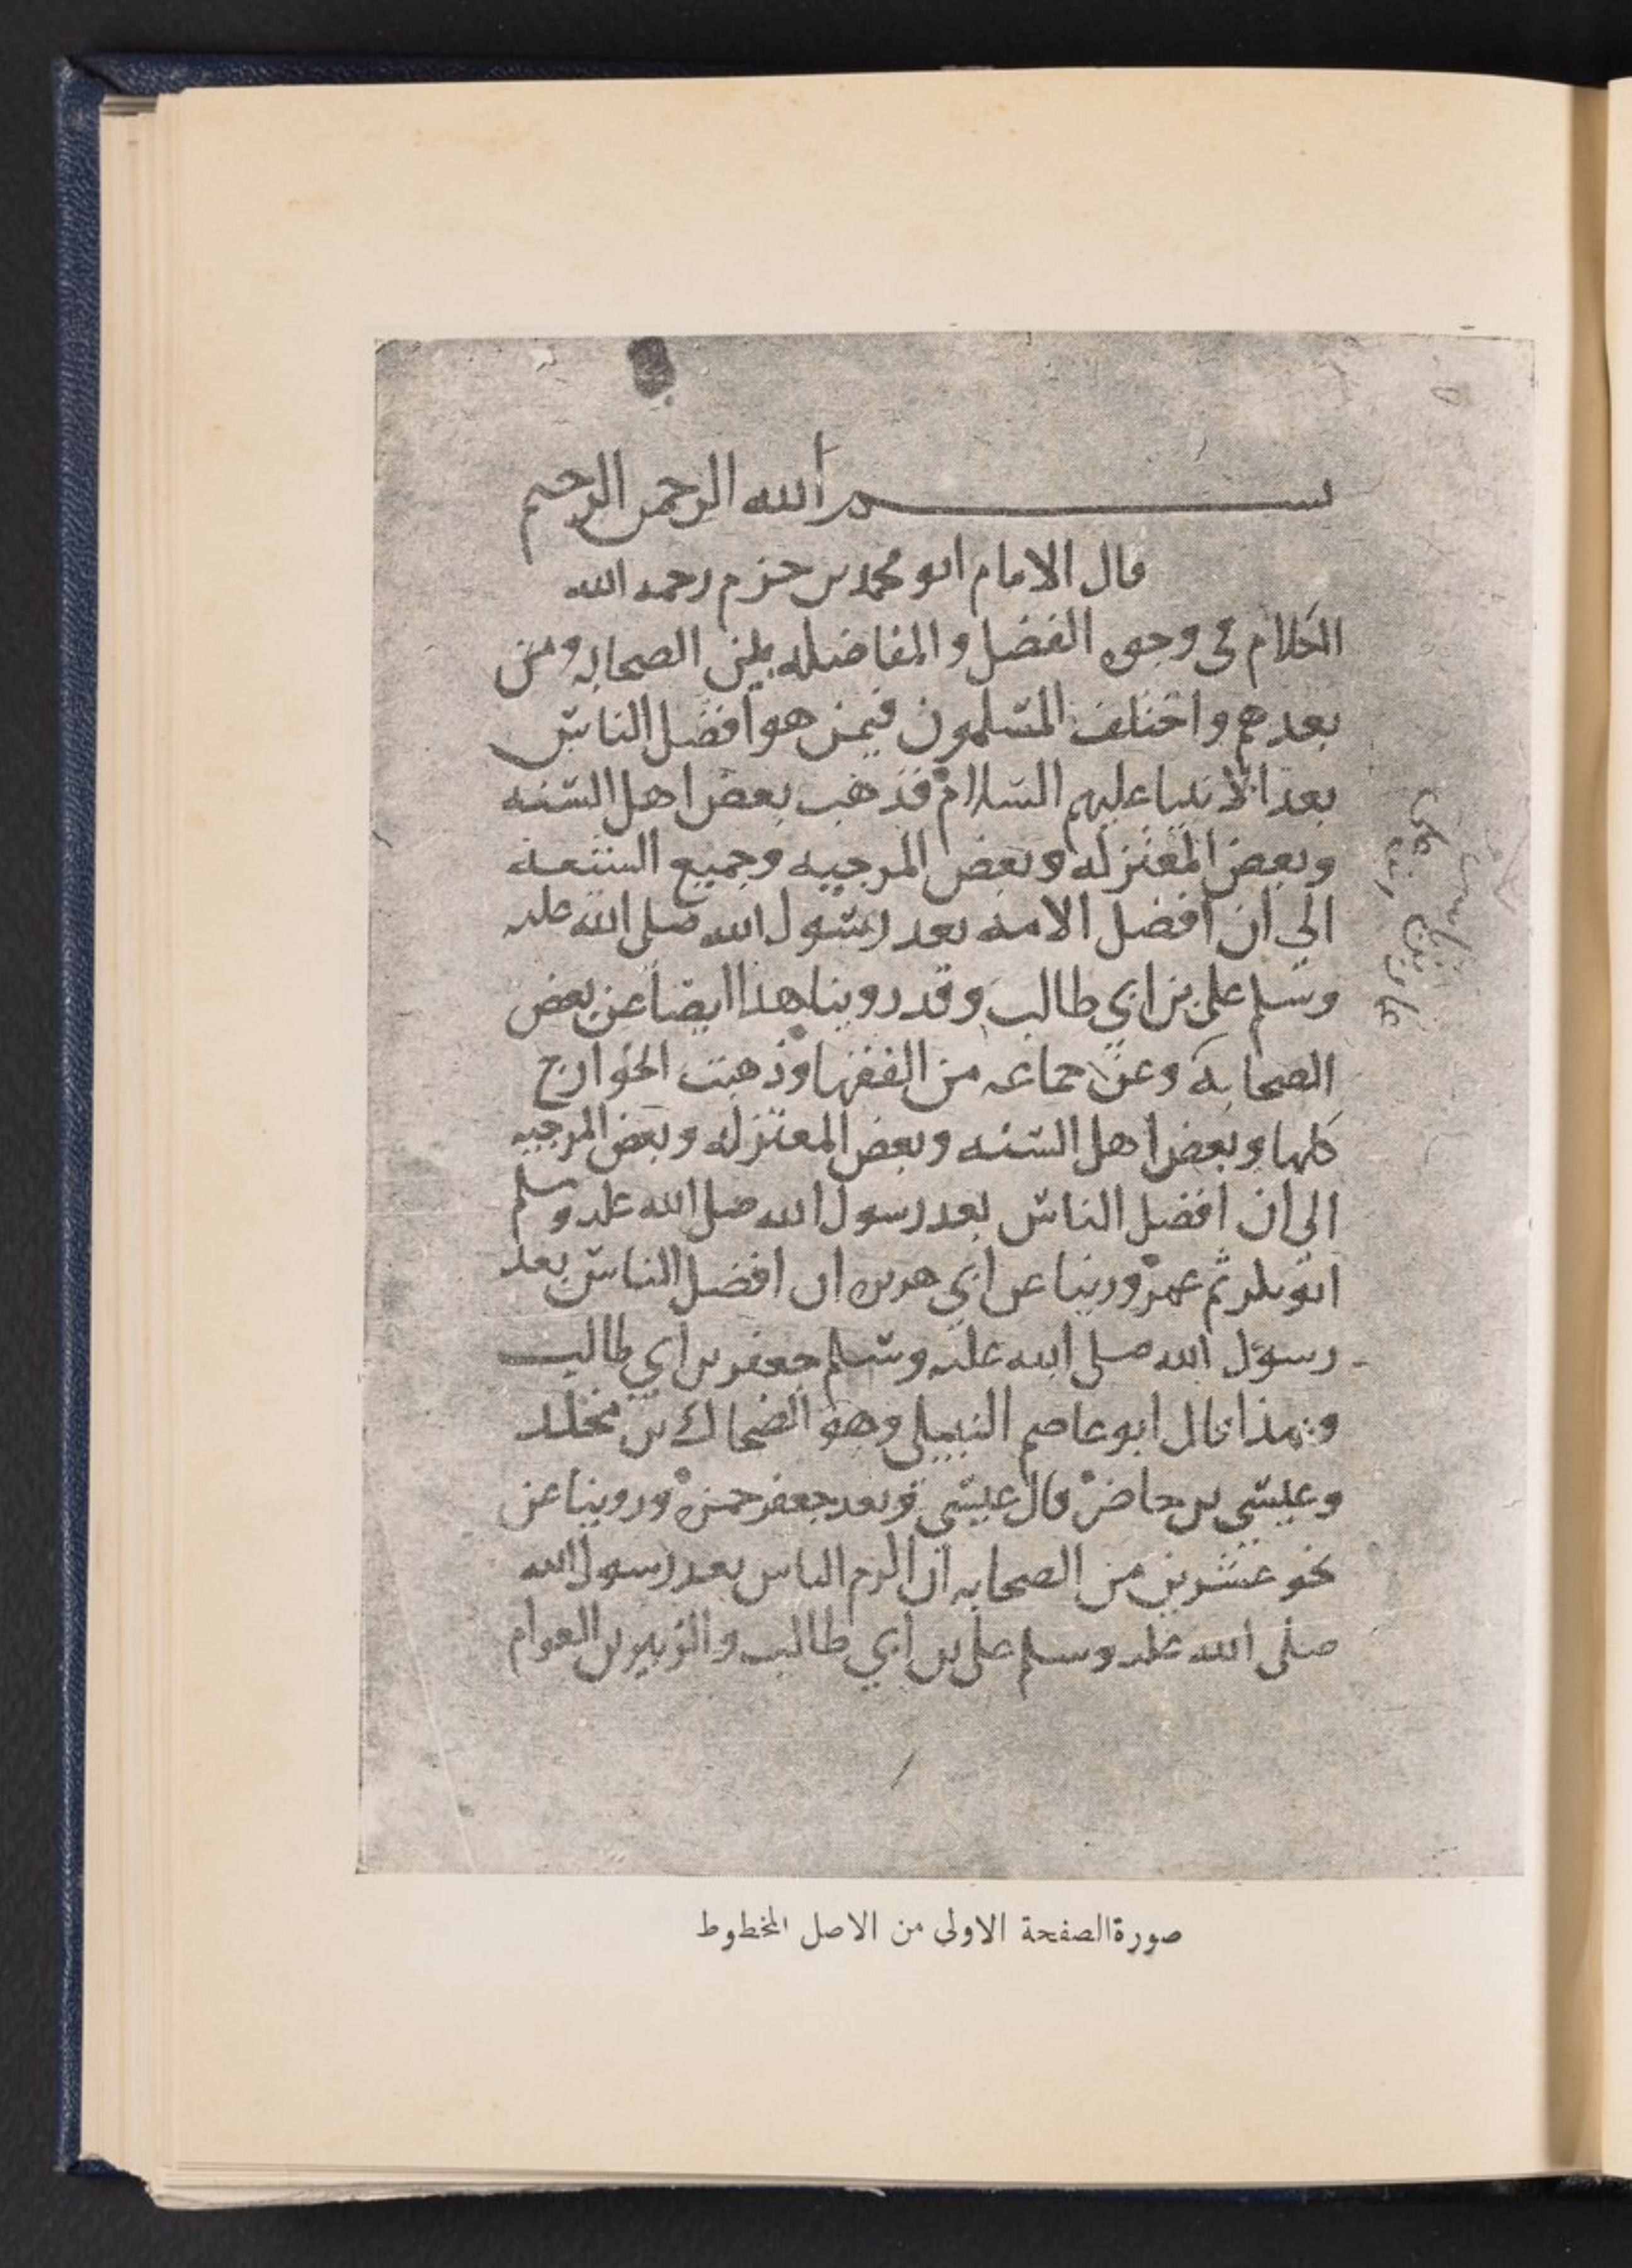 بسم الله الرحمن الرحيم
قال الامام ابو محمد بن حزم رحمه الله
الكلام في وجوه الفضل والمفاضله بين الصحابه ومن
بعدهم واختلف المسلمون فيمن هو افضل الناس
بعد الانبيا عليهم السلام فذهب بعض اهل السنه
وبعض المعتزله وبعض المرجيه وجميع الشيعة
الى ان افضل الامة بعد رسول الله صلى الله عليه
وسلم علي بن ابي طالب وقد روينا هذا ايضا عن بعض
الصحابة وعن جماعه من الفقها وذهبت الخوارج
كلها وبعض اهل السنه وبعض المعتزله وبعض المرجيه
الى ان افضل الناس بعد رسول الله صلى الله عليه وسلم
ابو بكر ثم عمر وروينا عن ابي هريره ان افضل الناس بعد
رسول الله صلى الله عليه وسلم جعفر بن ابي طالب
وبهذا قال ابو عاصم النبيل وهو الضحاك بن مخلد
وعيسى بن حاضر قال عيسى وبعد جعفر حمزه وروينا عن
نحو عشرين من الصحابه ان اكرم الناس بعد رسول الله
صلى الله عليه وسلم علي بن ابي طالب والزبير بن العوام
صورة الصفحة الاولى من الاصل المخطوط